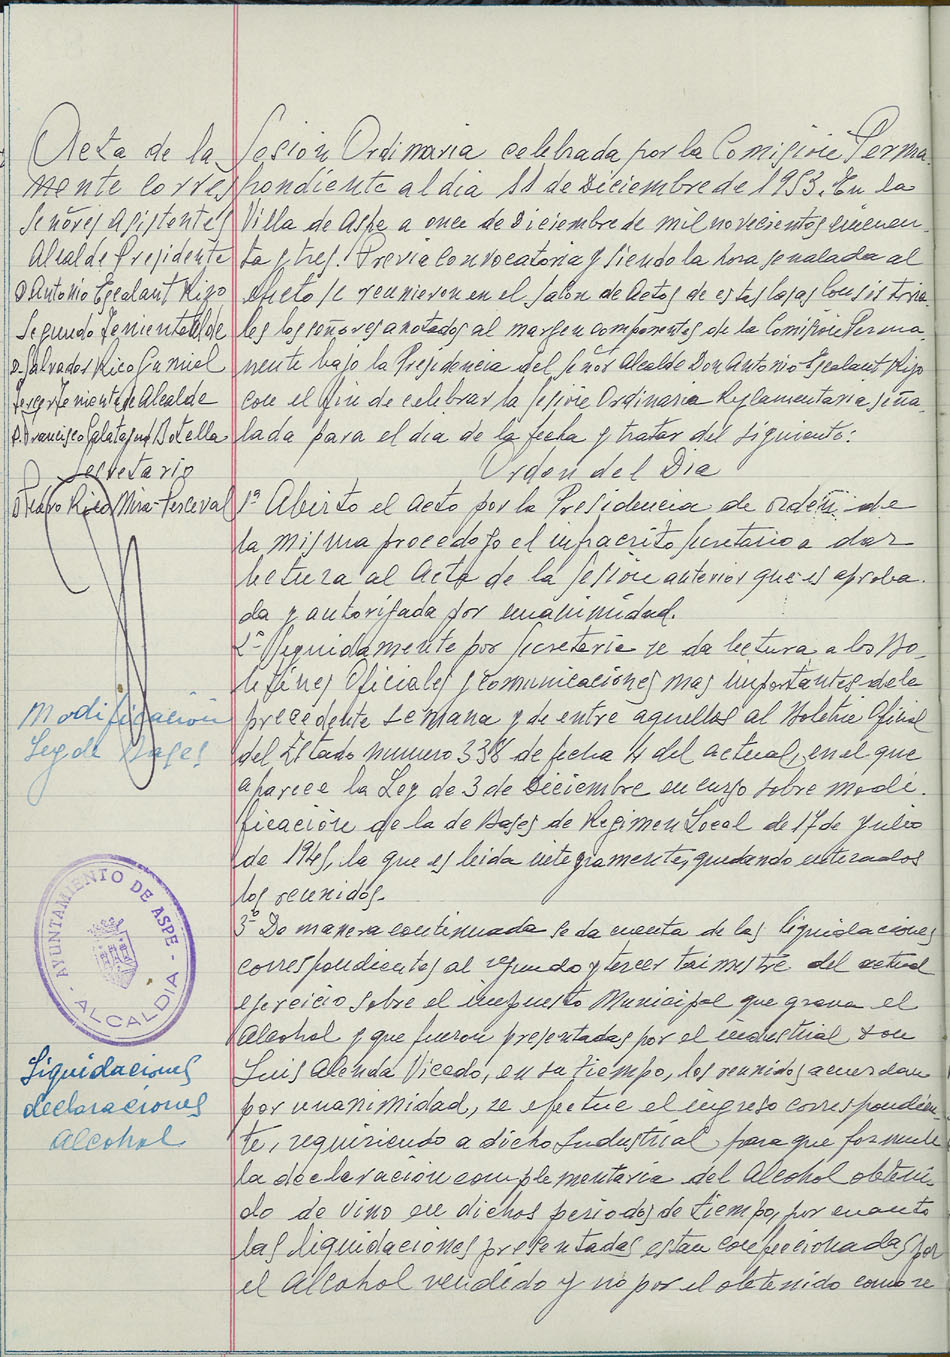 Acta de la Sesión Ordinaria celebrada por la Comisión Perma-
nente correspondiente al dia 11 de Diciembre de 1953. En la
Señores asistentes
Alcalde Presidente
D. Antonio Escalant Rizo
Segundo Teniente Alcalde
D. Salvador Rico Gumiel
Tercer Teniente de Alcalde
D. Francisco Calatayud Botella
Secretario
D. Pedro Rico Mira-Perceval
Villa de Aspe a once de Diciembre de mil novecientos cincuen-
ta y tres. Previa convocatoria y siendo la hora senalada al
efecto se reunieron en el salon de actos de estas Casas Consistoria-
les los señores anotados al margen componentes de la Comisión Perma-
nente bajo la Presidencia del señor Alcalde Don Antonio Escalant Rizo
con el fin de celebrar la sesión Ordinaria Reglamentaria seña-
lada para el dia de la fecha y tratar del siguiente:
Orden del Dia
1º Abierto el acto por la Presidencia de orden de
la misma procedo yo el infracrito secretario a dar
lectura al acta de la sesión anterior que es aproba-
da y autorizada por unanimidad.
2º Seguidamente por Secretaria se da lectura a los Bo-
letines Oficiales y comunicaciones mas importantes de la
precedente semana y de entre aquellos al Boletin Oficial
Modificación
Ley de Bases
del Estado numero 338 de fecha 4 del actual, en el que
aparece la Ley de 3 de Diciembre en curso sobre modi-
ficación de la de Bases de Regimen Local de 17 de Julio
de 1945, la que es leida integramente, quedando enterados
los reunidos.
AYUNTAMIENTO DE ASPE
- ALCALDIA -
3º De manera continuada se da cuenta de las liquidaciones
correspondientes al segundo y tercer trimestre del actual
ejercicio sobre el impuesto Municipal que grava el
Alcohol y que fueron presentadas por el industrial don
Liquidaciones
declaraciones
alcohol
Luis Alenda Vicedo, en su tiempo, los reunidos acuerdan
por unanimidad, se efectue el ingreso correspondien-
te, requiriendo a dicho Industrial para que formule
la declaración complementaria del Alcohol obteni-
do de vino en dichos periodos de tiempo, por cuanto
las liquidaciones presentadas estan confeccionadas por
el Alcohol vendido y no por el obtenido como re